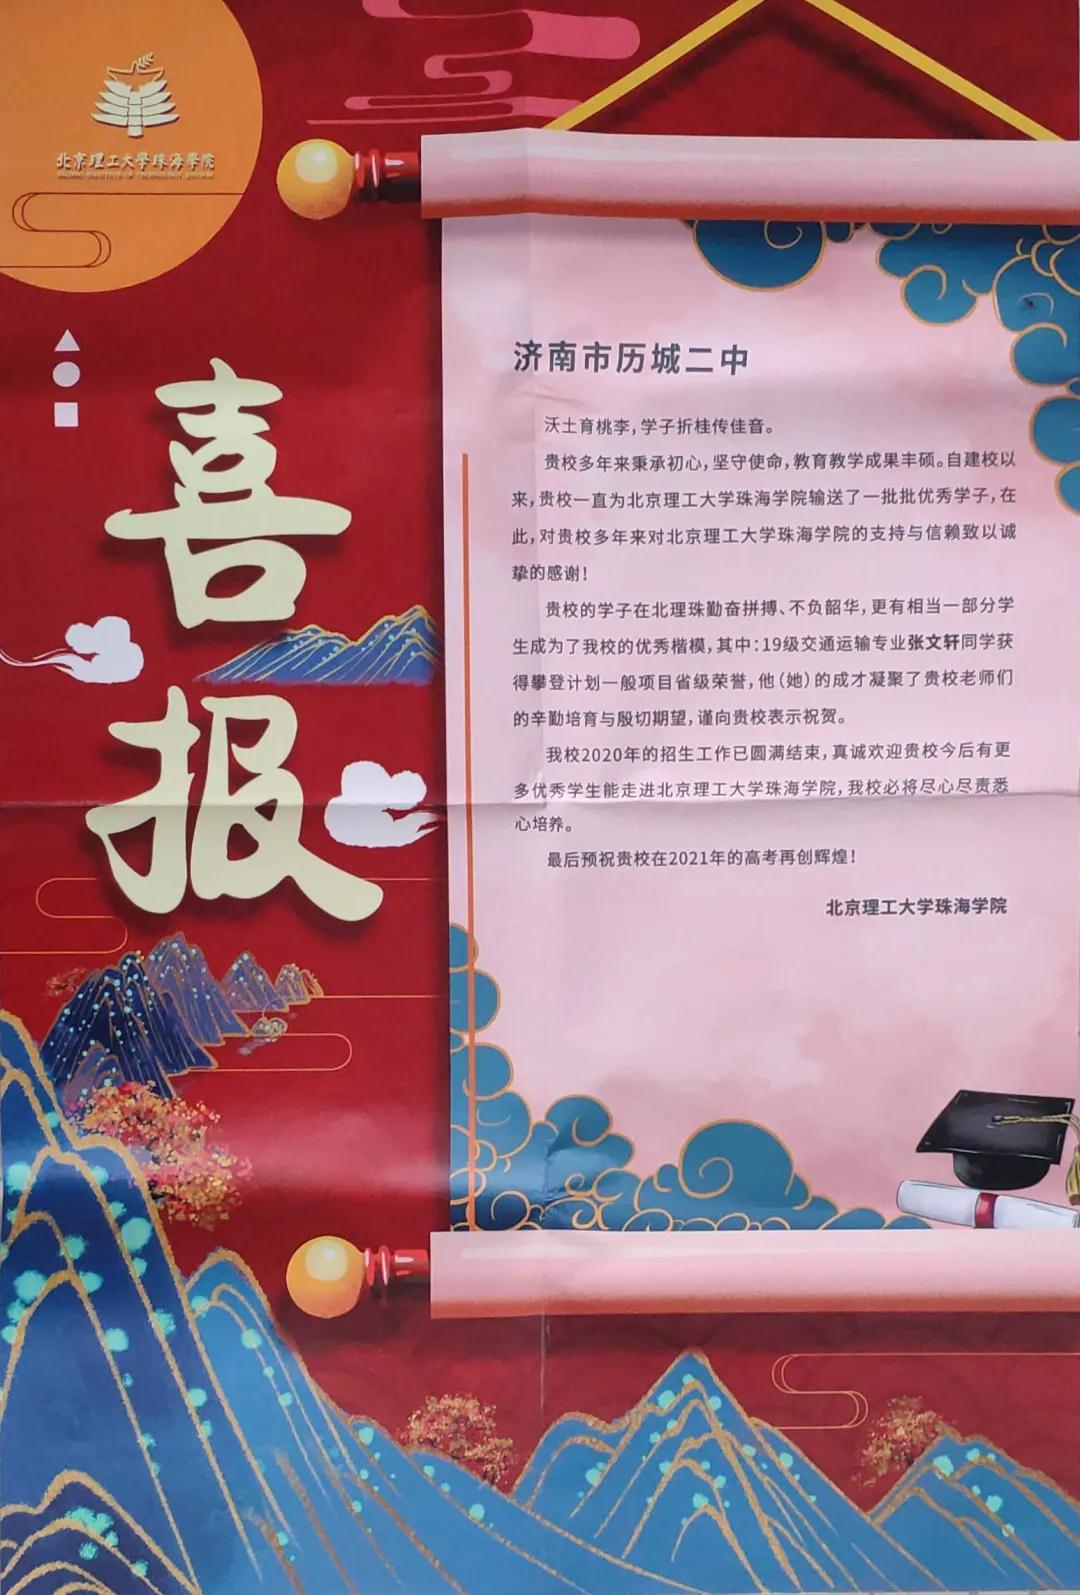 北京理工大学珠海学院
BEIJING INSTITUTE OF TECHNOLOGY, ZHUHAI
喜报
济南市历城二中
沃土育桃李,学子折桂传佳音。
贵校多年来秉承初心,坚守使命,教育教学成果丰硕。自建校以
来,贵校一直为北京理工大学珠海学院输送了一批批优秀学子,在
此,对贵校多年来对北京理工大学珠海学院的支持与信赖致以诚
挚的感谢!
贵校的学子在北理珠勤奋拼搏、不负韶华,更有相当一部分学
生成为了我校的优秀楷模,其中:19级交通运输专业张文轩同学获
得攀登计划一般项目省级荣誉,他(她)的成才凝聚了贵校老师们
的辛勤培育与殷切期望,谨向贵校表示祝贺。
我校2020年的招生工作已圆满结束,真诚欢迎贵校今后有更
多优秀学生能走进北京理工大学珠海学院,我校必将尽心尽责悉
心培养。
最后预祝贵校在2021年的高考再创辉煌!
北京理工大学珠海学院